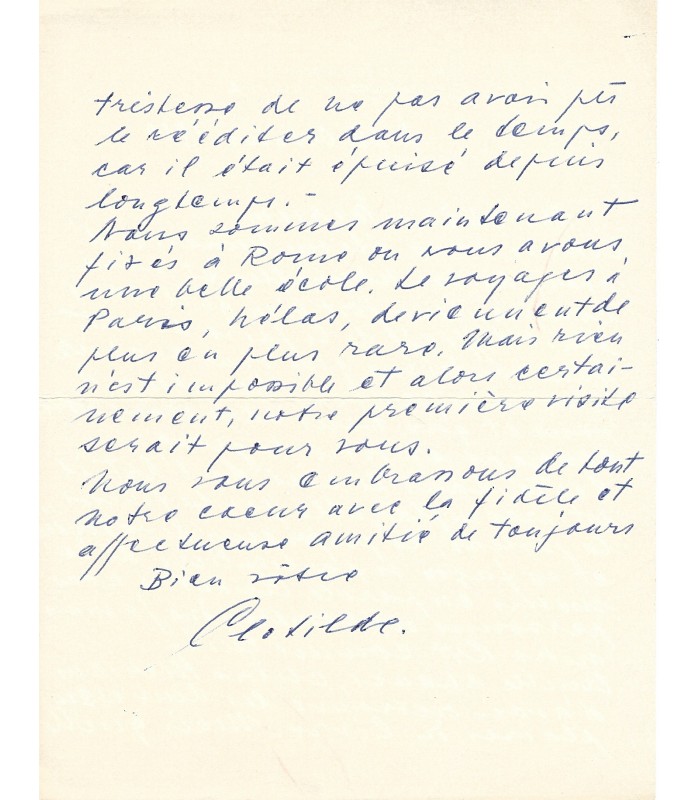 tristesse de ne pas avoir pu
le rééditer dans le temps,
car il était épuisé depuis
longtemps. -
Nous sommes maintenant
fixés à Rome où nous avons
une belle école. Le voyages à
Paris, hélas, deviennent de
plus en plus rare. Mais rien
n'est impossible et alors certai-
nement, notre première visite
serait pour vous.
Nous vous embrassons de tout
notre coeur avec la fidèle et
affectueuse amitié de toujours
Bien vôtre
Clotilde.